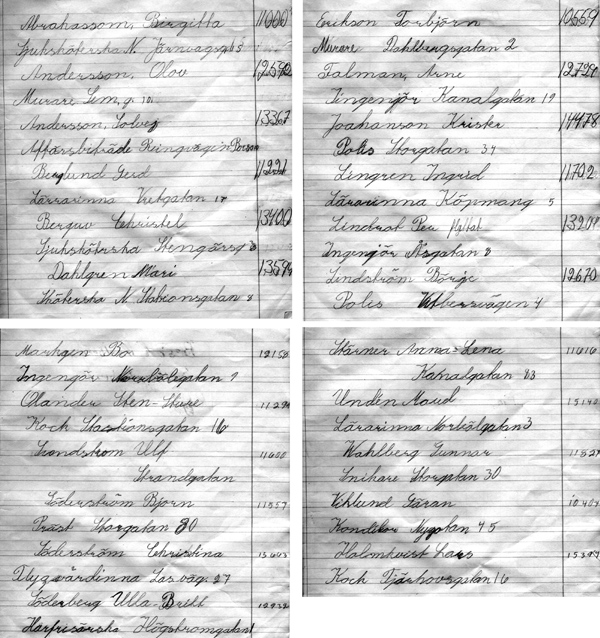 Abrahassom, Birgitta 11000
Sjukshöterska N. Järnvägsg
Andersson, Olov
Murare Lem,g. 10
Andersson, Solveg 13367
Affärsbiträde Reingvägin
Berglund Gerd 11221
Lärrarinna Vretgatan 17
Berguv Christel 13400
Sjukshöterska Stengärsg
Dahlgren Mari
Shöterska N. Stationsgatan 8
Erikson Torbjörn 10559
Murare Dahlbergsgatan 2
Talman, Arne
Iingenjör Kanalgatan 19
Joahanson Krister 14478
Polis Storgatan 34
Lingren Ingrid 11702
Lärarinna Köpmang 5
Lindrot Per
Ingenjör Åsgatan 8
Lindström Börje 12670
Polis 4
Markgen Bo 12150
Ingengör Norrbölegatan 9
Olander Sten-Sture
Koch Stastionsgatan 16
Lundstrom Ulf 11600
Strandgatan
Söderström Bjorn 11557
Präst Storgatan 30
Söderström Christina
Flygvärdinna Las.väg. 27
Söderberg Ulla-Britt
Harfrisörska Högstromgatan
Stärner Anna-Lena 11616
Kanalgatan 83
Unden Maud
Lärarinna Norbölgatan 3
Wahlberg Gunnar
Snikare Storgatan 30
Viklund Göran
Konditor Nygatan 45
Holmkvist Lars
Koch Tjärhovsgatan 16